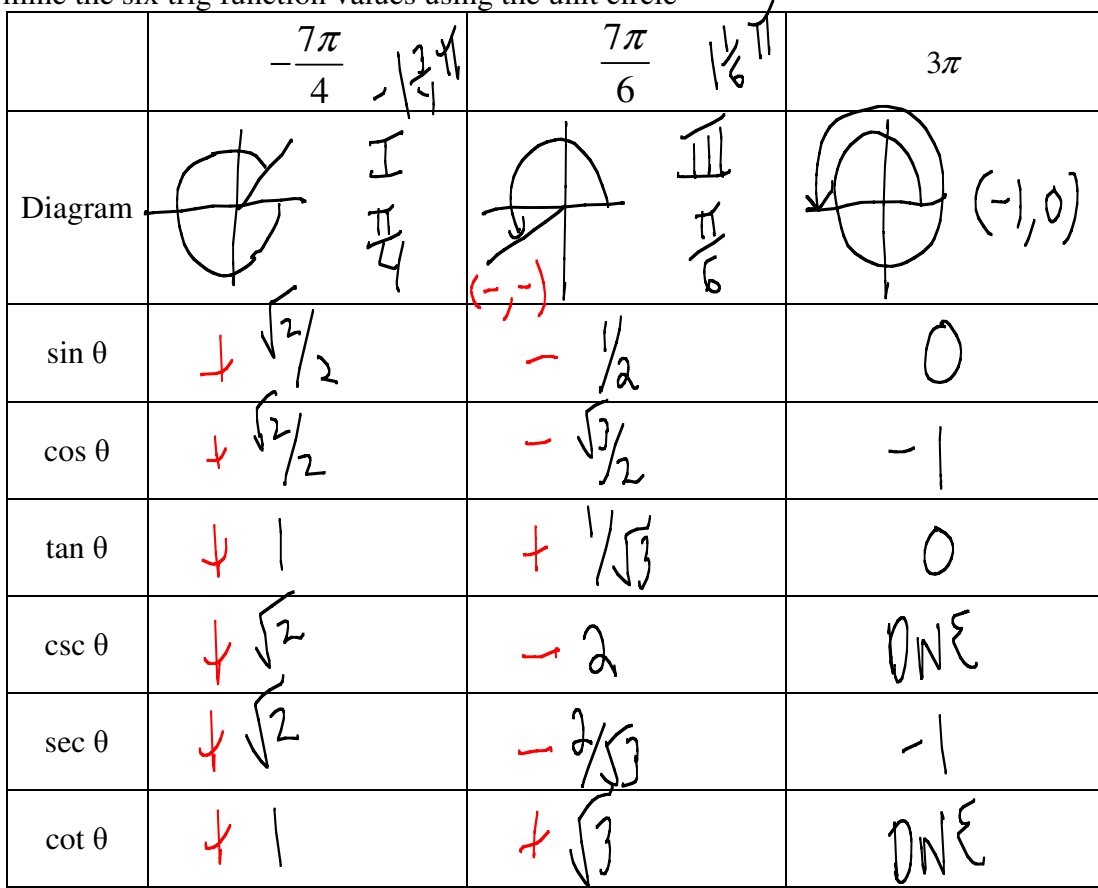 mine the six trig function values using the unit circle
-7π/4 -1 3/4 π 7π/6 1 1/6 π 3π
Diagram I π/4 (-,-) III π/6 (-1,0)
sin θ + √2/2 - 1/2 0
cos θ + √2/2 - √3/2 -1
tan θ + 1 + 1/√3 0
csc θ + √2 - 2 DNE
sec θ + √2 - 2/√3 -1
cot θ + 1 + √3 DNE